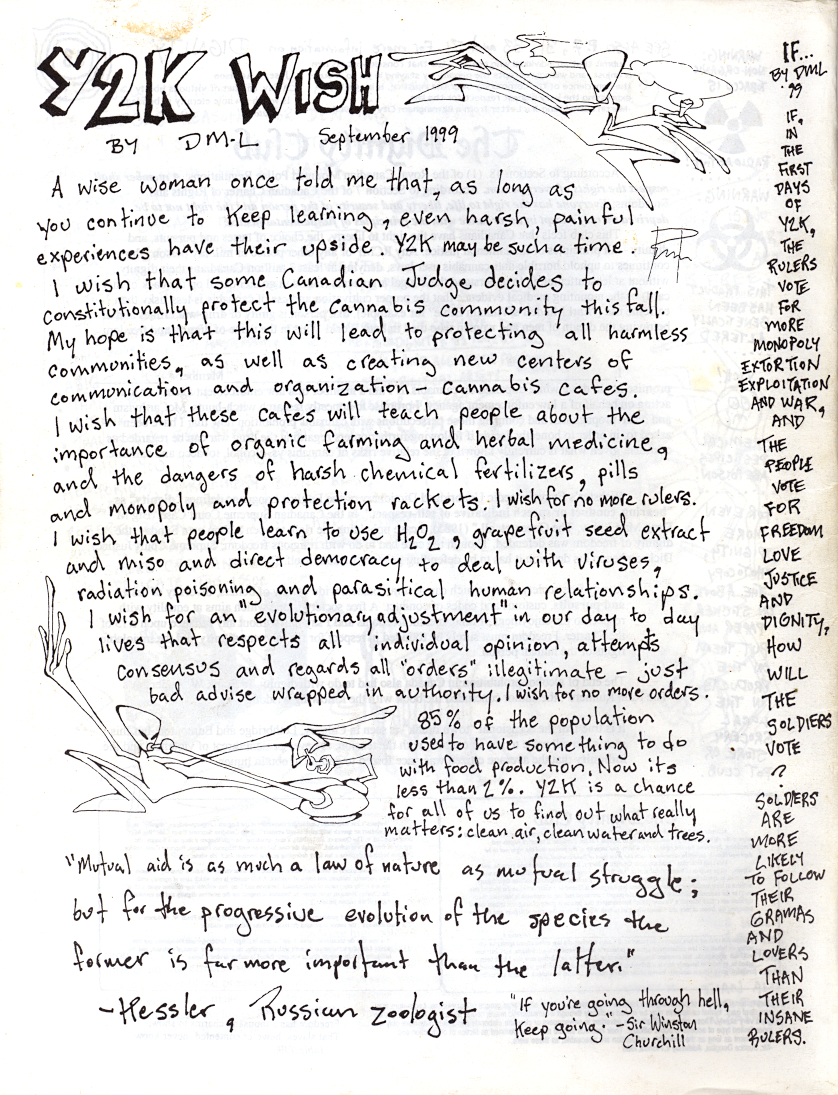 Y2K WISH
BY DM-L September 1999
A wise woman once told me that, as long as
you continue to keep learning, even harsh, painful
experiences have their upside. Y2K may be such a time.
I wish that some Canadian Judge decides to
constitutionally protect the cannabis community this fall.
My hope is that this will lead to protecting all harmless
communities, as well as creating new centers of
communication and organization – cannabis cafes.
I wish that these cafes will teach people about the
importance of organic farming and herbal medicine,
and the dangers of harsh chemical fertilizers, pills
and monopoly and protection rackets. I wish for no more rulers.
I wish that people learn to use H2O2, grapefruit seed extract
and miso and direct democracy to deal with viruses,
radiation poisoning and parasitical human relationships.
I wish for an "evolutionary adjustment" in our day to day
lives that respects all individual opinion, attempts
consensus and regards all "orders" illegitimate – just
bad advise wrapped in authority. I wish for no more orders.
85% of the population
used to have something to do
with food production. Now its
less than 2%. Y2K is a chance
for all of us to find out what really
matters: clean air, clean water and trees.
"Mutual aid is as much a law of nature as mutual struggle;
but for the progressive evolution of the species the
former is far more important than the latter."
– Kessler, Russian zoologist
"If you're going through hell,
keep going." – Sir Winston
Churchill
IF...
BY DML
'99
IF,
IN
THE
FIRST
DAYS
OF
Y2K,
THE
RULERS
VOTE
FOR
MORE
MONOPOLY
EXTORTION
EXPLOITATION
AND WAR,
AND
THE
PEOPLE
VOTE
FOR
FREEDOM
LOVE
JUSTICE
AND
DIGNITY,
HOW
WILL
THE
SOLDIERS
VOTE
?
SOLDIERS
ARE
MORE
LIKELY
TO FOLLOW
THEIR
GRAMAS
AND
LOVERS
THAN
THEIR
INSANE
RULERS.